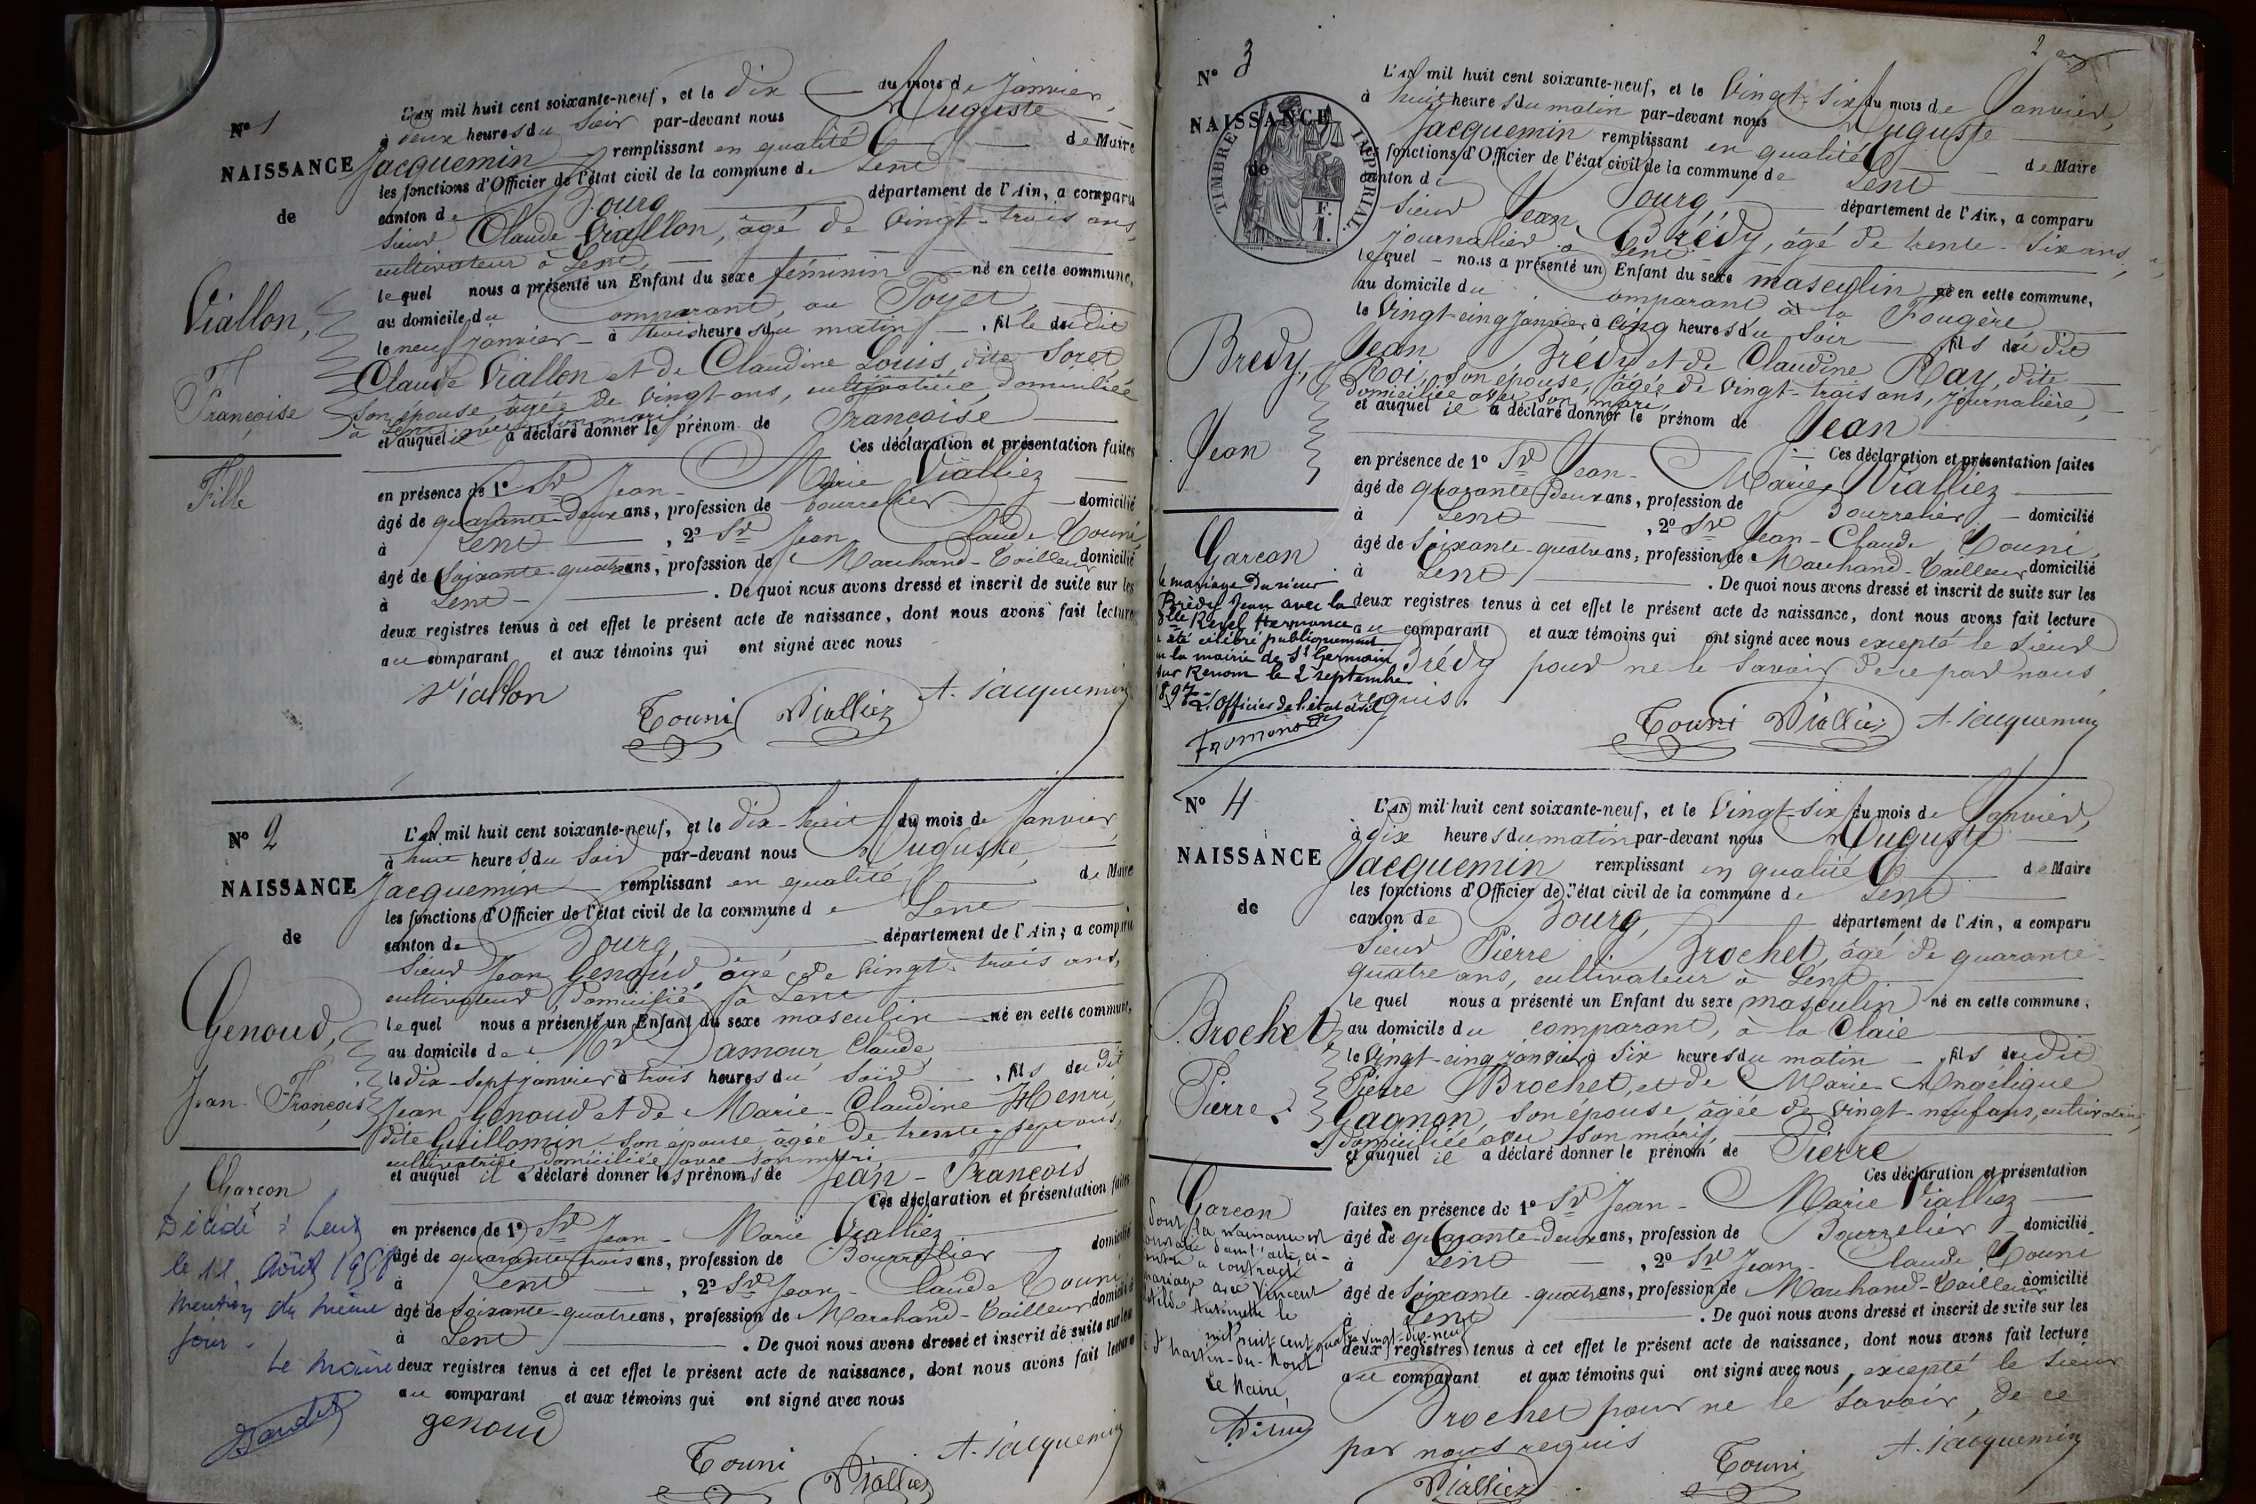 N° 1
NAISSANCE
de
Viallon,
Françoise
Fille
L'AN mil huit cent soixante-neuf, et le dix du mois de Janvier,
à deux heures du soir par-devant nous Auguste
Jacquemin remplissant en qualité de Maire
les fonctions d'Officier de l'état civil de la commune de Lent
canton de Bourg département de l'Ain, a comparu
sieur Claude Viallon, âgé de vingt-trois ans,
cultivateur à Lent,
lequel nous a présenté un Enfant du sexe féminin né en cette commune,
au domicile du Comparant, au Poyet
le neuf janvier à trois heures du matin, fille du dit
Claude Viallon et de Claudine Louis, dite Soret,
son épouse, âgée de vingt ans, cultivatrice, domiciliée
à Lent avec son mari,
et auquel il a déclaré donner le prénom de Françoise
Ces déclaration et présentation faites
en présence de 1° Sr Jean-Marie Vialliez
âgé de quarante-deux ans, profession de bourrelier domicilié
à Lent, 2° Sr Jean Claude Touni,
âgé de Soixante-quatre ans, profession de Marchand-Tailleur domicilié
à Lent. De quoi nous avons dressé et inscrit de suite sur les
deux registres tenus à cet effet le présent acte de naissance, dont nous avons fait lecture
au comparant et aux témoins qui ont signé avec nous
Viallon
Touni Vialliez A. Jacquemin
N° 2
NAISSANCE
de
Genoud,
Jean-François,
Garçon
Décédé à Lent
le 11 Août 195
Mention du même
jour.
Le Maire
L'AN mil huit cent soixante-neuf, et le dix-huit du mois de Janvier,
à huit heures du Soir par-devant nous Auguste
Jacquemin remplissant en qualité de Maire
les fonctions d'Officier de l'état civil de la commune de Lent
canton de Bourg, département de l'Ain, a comparu
sieur Jean Genoud, âgé de vingt-trois ans,
cultivateur, domicilié à Lent
lequel nous a présenté un Enfant du sexe masculin né en cette commune,
au domicile de Mr Damour Claude
le dix-sept janvier à trois heures du soir, fils du dit
Jean Genoud et de Marie-Claudine Henri,
dite Guillomin, son épouse, âgée de trente-sept ans,
cultivatrice, domiciliée avec son mari
et auquel il a déclaré donner les prénoms de Jean-François
Ces déclaration et présentation faites
en présence de 1° Sr Jean-Marie Vialliez
âgé de quarante-trois ans, profession de Bourrelier domicilié
à Lent, 2° Sr Jean-Claude Touni
âgé de Soixante-quatre ans, profession de Marchand-Tailleur domicilié
à Lent. De quoi nous avons dressé et inscrit de suite sur les
deux registres tenus à cet effet le présent acte de naissance, dont nous avons fait lecture
au comparant et aux témoins qui ont signé avec nous
genoud
Touni Vialliez A. Jacquemin
2
N° 3
NAISSANCE
de
TIMBRE IMPÉRIAL
F.
1.
Brédy,
Jean
Garçon
le mariage du sieur
Brédy Jean avec la
Dlle Revel Hermance
a été célébré publiquement
en la mairie de St Germain
sur Renom le 2 septembre
1897.
L'Officier de l'état civil
L'AN mil huit cent soixante-neuf, et le Vingt-six du mois de Janvier,
à huit heures du matin par-devant nous Auguste
Jacquemin remplissant en qualité de Maire
les fonctions d'Officier de l'état civil de la commune de Lent
canton de Bourg, département de l'Ain, a comparu
sieur Jean Brédy, âgé de trente-six ans,
journalier à Lent
lequel nous a présenté un Enfant du sexe masculin né en cette commune,
au domicile du comparant à la Fougère
le Vingt-cinq janvier à cinq heures du soir fils du dit
Jean Brédy et de Claudine Ray, dite
Roi, son épouse, âgée de vingt-trois ans, journalière,
domiciliée avec son mari,
et auquel il a déclaré donner le prénom de Jean
Ces déclaration et présentation faites
en présence de 1° Sr Jean-Marie Vialliez
âgé de quarante-deux ans, profession de Bourrelier domicilié
à Lent, 2° Sr Jean-Claude Touni,
âgé de Soixante-quatre ans, profession de Marchand-Tailleur domicilié
à Lent. De quoi nous avons dressé et inscrit de suite sur les
deux registres tenus à cet effet le présent acte de naissance, dont nous avons fait lecture
au comparant et aux témoins qui ont signé avec nous excepté le sieur
Brédy pour ne le savoir de ce par nous
requis.
Touni Vialliez A. Jacquemin
N° 4
NAISSANCE
de
Brochet
Pierre.
Garçon
contracté
mariage avec Vincent
Antoinette le
mil huit cent quatre vingt-dix-neuf
à St Martin-du-Mont
Le Maire,
L'AN mil huit cent soixante-neuf, et le Vingt-six du mois de Janvier,
à dix heures du matin par-devant nous Auguste
Jacquemin remplissant en qualité de Maire
les fonctions d'Officier de l'état civil de la commune de Lent
canton de Bourg, département de l'Ain, a comparu
Sieur Pierre Brochet, âgé de quarante-
quatre ans, cultivateur à Lent
lequel nous a présenté un Enfant du sexe masculin né en cette commune,
au domicile du comparant, à la Claie
le Vingt-cinq janvier à six heures du matin, fils du dit
Pierre Brochet, et de Marie-Angélique
Gagnon, son épouse, âgée de vingt-neuf ans, cultivatrice,
domiciliée avec son mari,
et auquel il a déclaré donner le prénom de Pierre
Ces déclaration et présentation
faites en présence de 1° Sr Jean-Marie Vialliez
âgé de quarante-deux ans, profession de Bourrelier domicilié
à Lent, 2° Sr Jean-Claude Touni
âgé de Soixante-quatre ans, profession de Marchand-Tailleur domicilié
à Lent. De quoi nous avons dressé et inscrit de suite sur les
deux registres tenus à cet effet le présent acte de naissance, dont nous avons fait lecture
au comparant et aux témoins qui ont signé avec nous, excepté le sieur
Brochet pour ne le savoir, de ce
par nous requis
Vialliez Touni A. Jacquemin